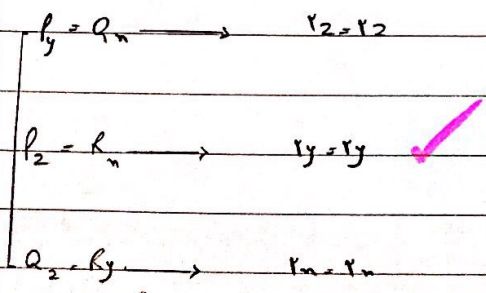 P_y = Q_x → ۲z = ۲z
P_z = R_x → ۲y = ۲y ✓
Q_z = R_y → ۲x = ۲x